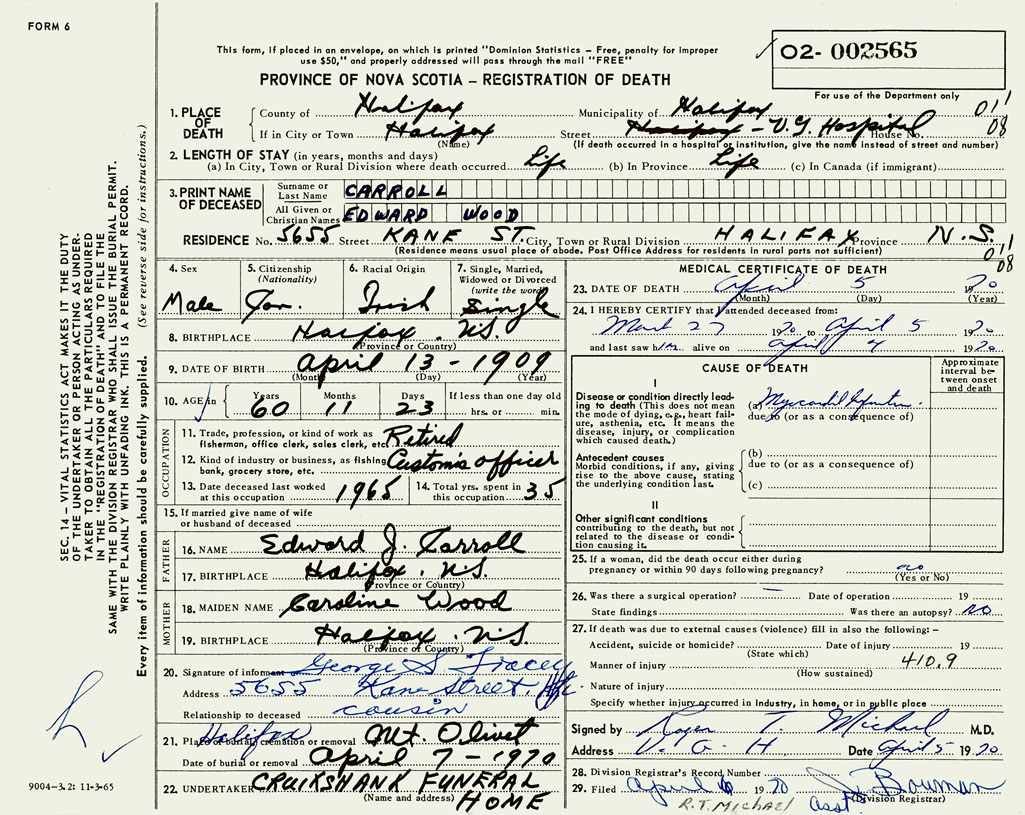 FORM 6
This form, if placed in an envelope, on which is printed "Dominion Statistics – Free, penalty for improper
use $50," and properly addressed will pass through the mail "FREE"
O2- 002565
PROVINCE OF NOVA SCOTIA – REGISTRATION OF DEATH
For use of the Department only
1. PLACE OF DEATH
County of Halifax Municipality of Halifax 011
If in City or Town Halifax Street Halifax - V.G. Hospital House No. 08
(Name) (If death occurred in a hospital or institution, give the name instead of street and number)
2. LENGTH OF STAY (in years, months and days)
(a) In City, Town or Rural Division where death occurred Life (b) In Province Life (c) In Canada (if immigrant)
3. PRINT NAME OF DECEASED
Surname or Last Name CARROLL
All Given or Christian Names EDWARD WOOD
RESIDENCE No. 5655 Street KANE ST. City, Town or Rural Division HALIFAX Province N.S.
(Residence means usual place of abode. Post Office Address for residents in rural parts not sufficient) 011
08
4. Sex Male
5. Citizenship (Nationality) Can.
6. Racial Origin Irish
7. Single, Married, Widowed or Divorced (write the word) Single
8. BIRTHPLACE Halifax N.S.
(Province or Country)
9. DATE OF BIRTH April 13 - 1909
(Month) (Day) (Year)
10. AGE in Years 60 Months 11 Days 23 If less than one day old hrs. or min.
OCCUPATION
11. Trade, profession, or kind of work as fisherman, office clerk, sales clerk, etc. Retired
12. Kind of industry or business, as fishing, bank, grocery store, etc. Customs officer
13. Date deceased last worked at this occupation 1965
14. Total yrs. spent in this occupation 35
15. If married give name of wife or husband of deceased
FATHER
16. NAME Edward J. Carroll
17. BIRTHPLACE Halifax. N.S.
(Province or Country)
MOTHER
18. MAIDEN NAME Caroline Wood
19. BIRTHPLACE Halifax. N.S.
(Province or Country)
20. Signature of informant George S. Tracey
Address 5655 Kane Street, Hfx.
Relationship to deceased cousin
21. Place of burial, cremation or removal Halifax Mt. Olivet
Date of burial or removal April 7 - 1970
22. UNDERTAKER CRUIKSHANK FUNERAL
(Name and address) HOME
MEDICAL CERTIFICATE OF DEATH
23. DATE OF DEATH April 5 1970
(Month) (Day) (Year)
24. I HEREBY CERTIFY that I attended deceased from:
March 27 1970 to April 5 1970
and last saw him alive on April 4 1970
CAUSE OF DEATH
Approximate interval between onset and death
I
Disease or condition directly leading to death (This does not mean the mode of dying, e.g., heart failure, asthenia, etc. It means the disease, injury, or complication which caused death.)
(a) Myocardial Infarction
due to (or as a consequence of)
Antecedent causes
Morbid conditions, if any, giving rise to the above cause, stating the underlying condition last.
(b)
due to (or as a consequence of)
(c)
II
Other significant conditions contributing to the death, but not related to the disease or condition causing it.
25. If a woman, did the death occur either during
pregnancy or within 90 days following pregnancy? no
(Yes or No)
26. Was there a surgical operation? – Date of operation 19
State findings Was there an autopsy? No
27. If death was due to external causes (violence) fill in also the following: –
Accident, suicide or homicide? Date of injury 19
(State which)
Manner of injury 410.9
(How sustained)
Nature of injury
Specify whether injury occurred in industry, in home, or in public place
Signed by Roger T. Michael M.D.
Address V. G. H Date April 5 1970
28. Division Registrar's Record Number
29. Filed April 6 1970 J. Bowman
R.T. Michael Asst (Division Registrar)
SEC. 14 – VITAL STATISTICS ACT MAKES IT THE DUTY
OF THE UNDERTAKER OR PERSON ACTING AS UNDER-
TAKER TO OBTAIN ALL THE PARTICULARS REQUIRED
IN THE "REGISTRATION OF DEATH" AND TO FILE THE
SAME WITH THE DIVISION REGISTRAR WHO SHALL ISSUE THE BURIAL PERMIT.
WRITE PLAINLY WITH UNFADING INK. THIS IS A PERMANENT RECORD.
Every item of information should be carefully supplied. (See reverse side for instructions.)
9004-3.2: 11-3-65